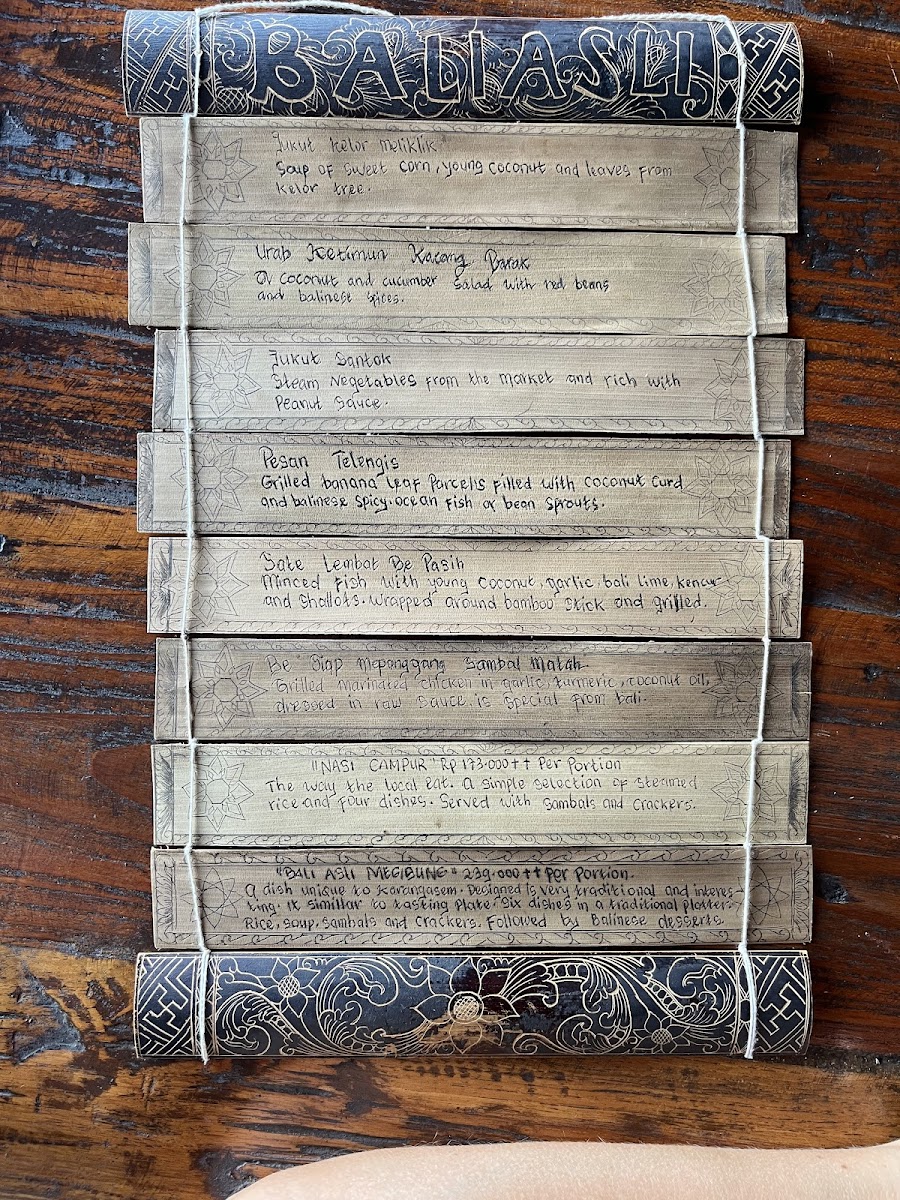 BALI ASLI
Jukut Kelor Meliklik
Soup of sweet corn, young coconut and leaves from
kelor tree.
Urab Ketimun Kacang Barak
A coconut and cucumber salad with red beans
and balinese spices.
Jukut Santok
Steam Vegetables from the market and rich with
Peanut sauce.
Pesan Telengis
Grilled banana leaf Parcels filled with coconut curd
and balinese spicy. ocean fish or bean sprouts.
Sate Lembat Be Pasih
Minced fish with young coconut, garlic, bali lime, kencur
and shallots. wrapped around bamboo stick and grilled.
Be Siap Mepanggang Sambal Matah
Grilled marinated chicken in garlic, turmeric, coconut oil,
dressed in raw sauce is special from bali.
"NASI CAMPUR" Rp 173.000++ Per Portion
The way the local eat. A simple selection of steamed
rice and four dishes. Served with sambals and crackers.
"BALI ASLI MEGIBUNG" 239.000++ Per Portion.
A dish unique to Karangasem. Designed is very traditional and interes-
ting. It simillar to tasting plate. Six dishes in a traditional platter.
Rice, soup, sambals and crackers. Followed by Balinese desserts.